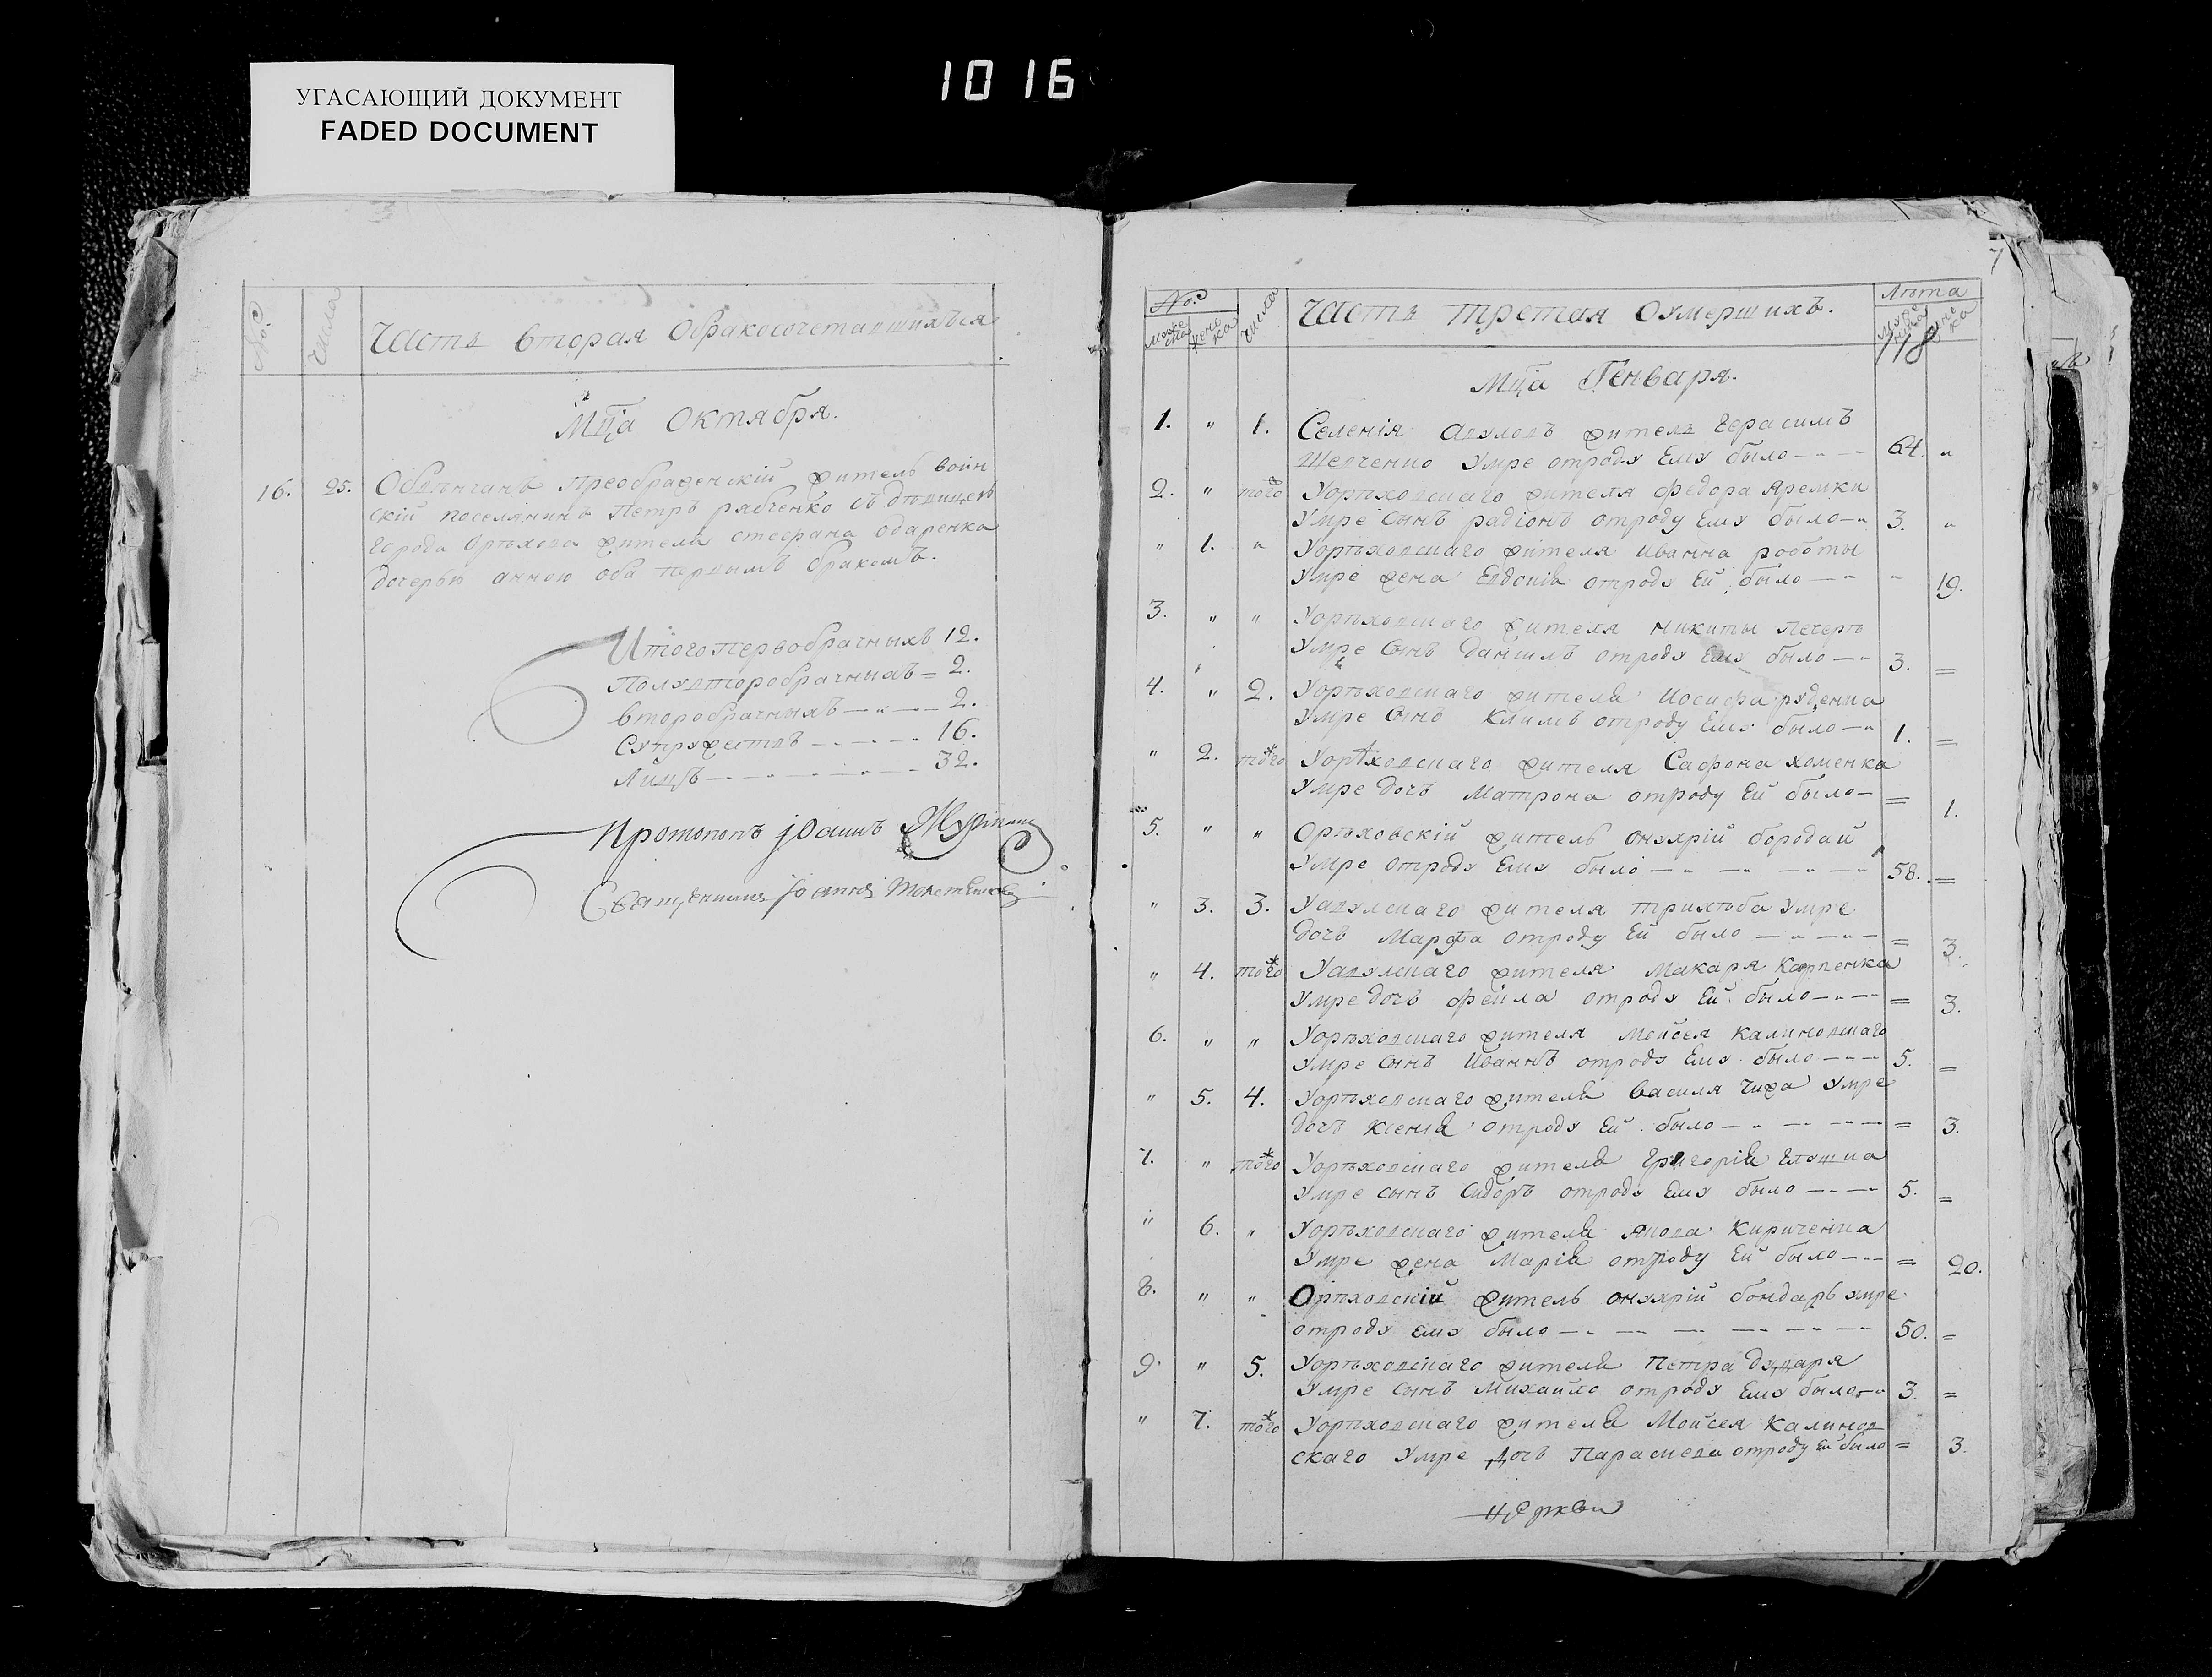 1016
УГАСАЮЩИЙ ДОКУМЕНТ
FADED DOCUMENT
No. Числа Часть вторая Обракосочетавшихъся.
Мца Октября.
16. 25. Обвѣнчанъ Преображенскій житель воин
скій поселянинъ Петръ рябченко съ дѣвицею
города Орѣхова жителя стефана одаренка
дочерью анною оба первымъ бракомъ.
Итого первобрачныхъ 12.
Полувторобрачныхъ = 2.
второбрачныхъ — " — 2.
Супружествъ - - - - - 16.
Лицъ - - - - - - 32.
Протопопъ іоаннъ
Священникъ Іоаннъ
No. Числа Часть третая Оумершихъ. Лѣта
мужеска женска мужеска женска
118
Мца Генваря.
1. " 1. Селенія жителъ Герасимъ
Шевченко Умре отроду Ему было - - - 64. "
2. " того Уорѣховскаго жителя федора Яремки
Умре сынъ радіонъ отроду Ему было - " 3. "
" 1. " Уорѣховскаго жителя иванна роботы
Умре жена Евдокія отроду Ей было — " " 19.
3. " " Уорѣховскаго жителя никиты
Умре Сынъ Даниилъ отроду Ему было — " 3. =
4. " 2. Уорѣховскаго жителя Иосифа руденка
Умре Сынъ Климъ отроду Ему было — " 1. =
" 2. того Уорѣховскаго жителя Сафона хоменка
Умре Дочъ Матрона отроду Ей было — = 1.
5. " " Орѣховскій житель онуфрій бородай
Умре отроду Ему было — - — - — 58. =
" 3. 3. жителя Умре
дочъ Марфа отроду Ей было — " — " — = 3.
" 4. того жителя Макаря Карпенка
Умре дочъ отроду Ей было — - — = 3.
6. " " Уорѣховскаго жителя Мойсея Калиновскаго
Умре Сынъ Иваннъ отроду Ему было - - - 5. =
" 5. 4. Уорѣховскаго жителя василя чижа Умре
дочъ Ксенія отроду Ей было — - — - — = 3.
7. " того Уорѣховскаго жителя Григорія
Умре сынъ Сидоръ отроду Ему было — - — 5. =
" 6. " Уорѣховскаго жителя Якова Кириченка
Умре жена Марія отроду Ей было — - — = 20.
8. " " Орѣховскій житель онуфрій бондарь умре
отроду ему было — - — - — - — 50. =
9. " 5. Уорѣховскаго жителя Петра
Умре сынъ Михайло отроду Ему было - " 3. =
" 7. того Уорѣховскаго жителя Мойсея Калинов
скаго Умре Дочъ Параскева отроду Ей было = 3.
церкви